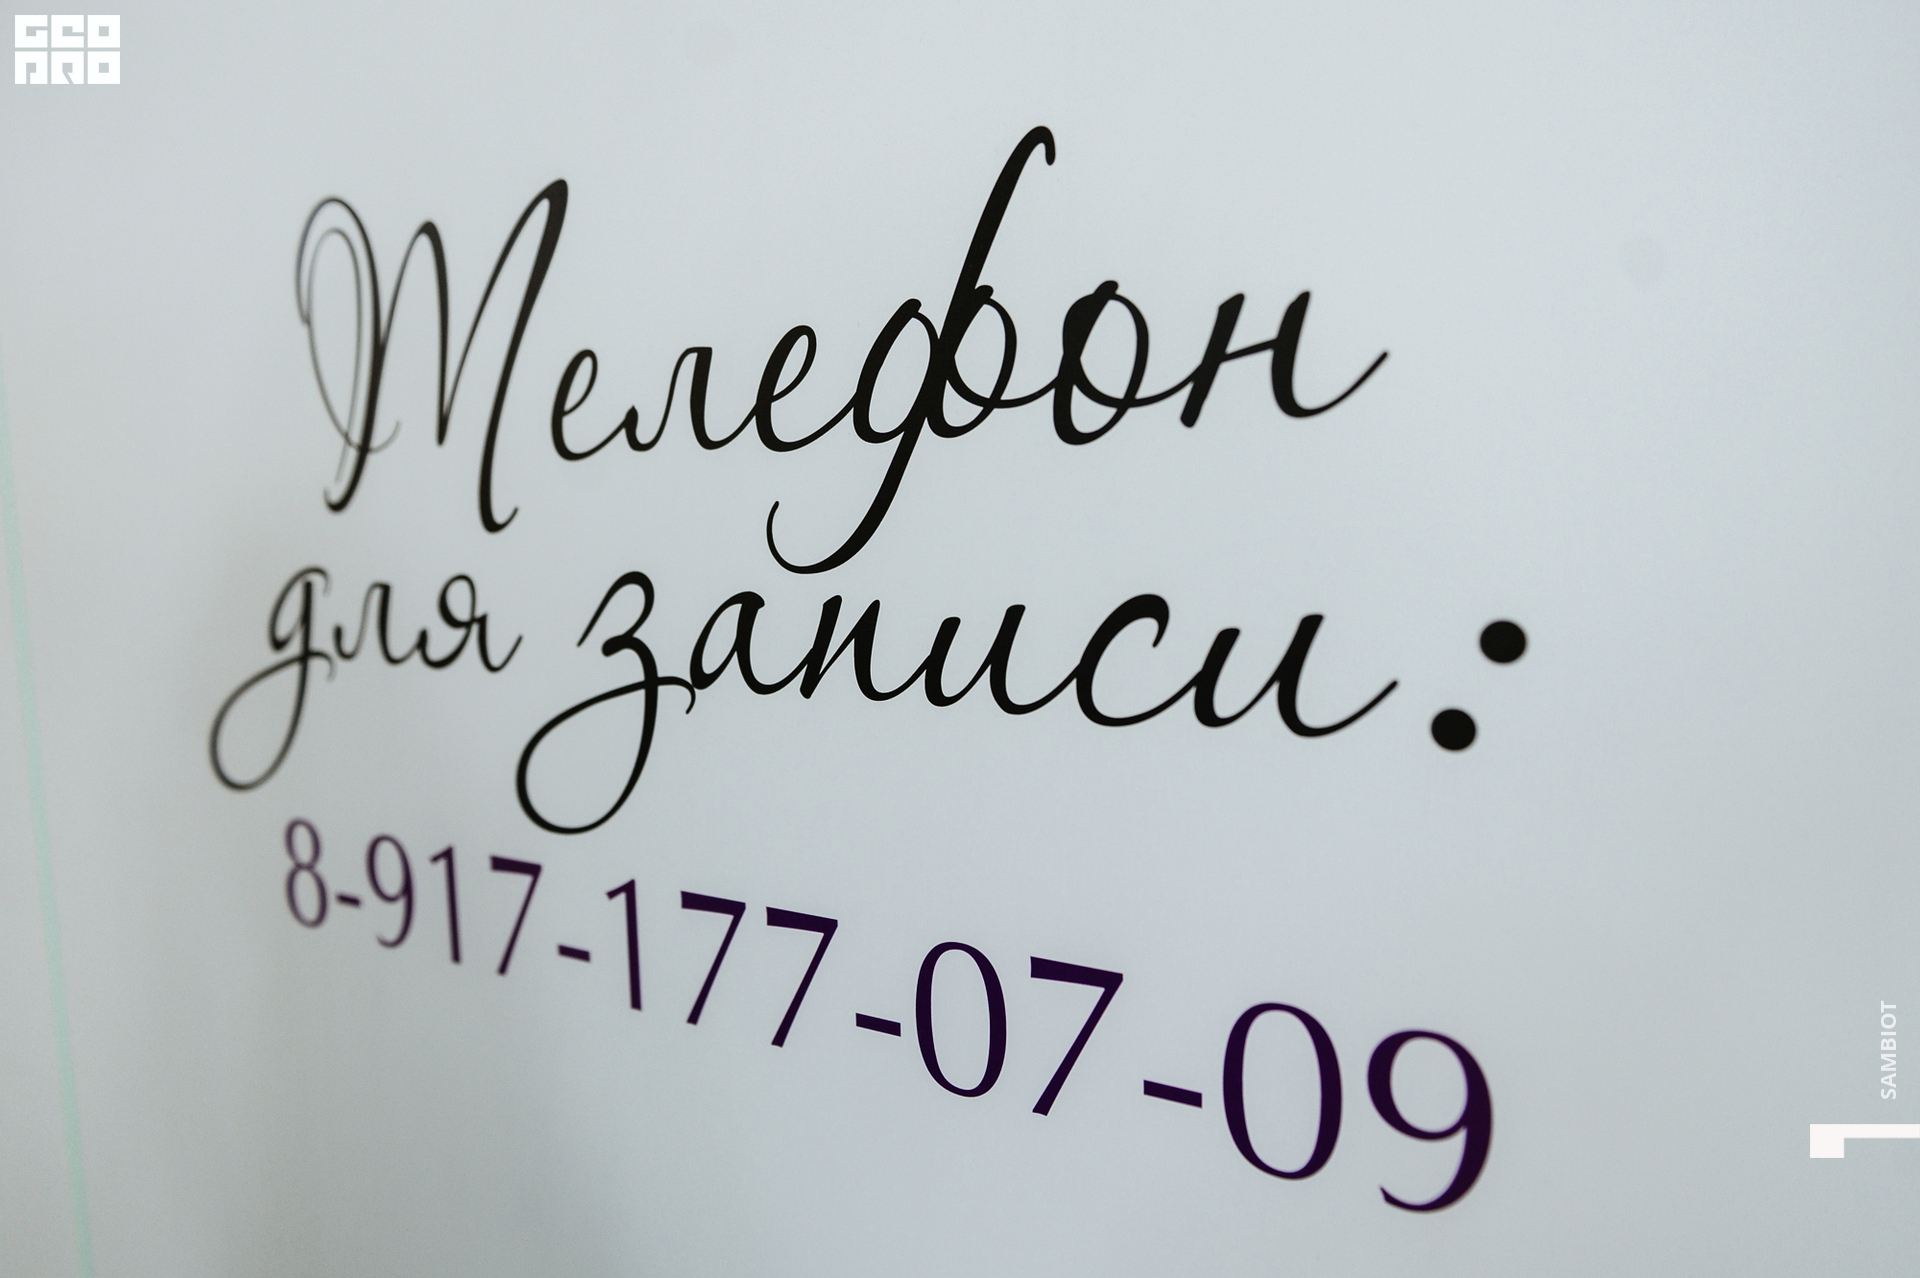 GEO
PRO
Телефон
для записи:
8-917-177-07-09
SAMBIOT